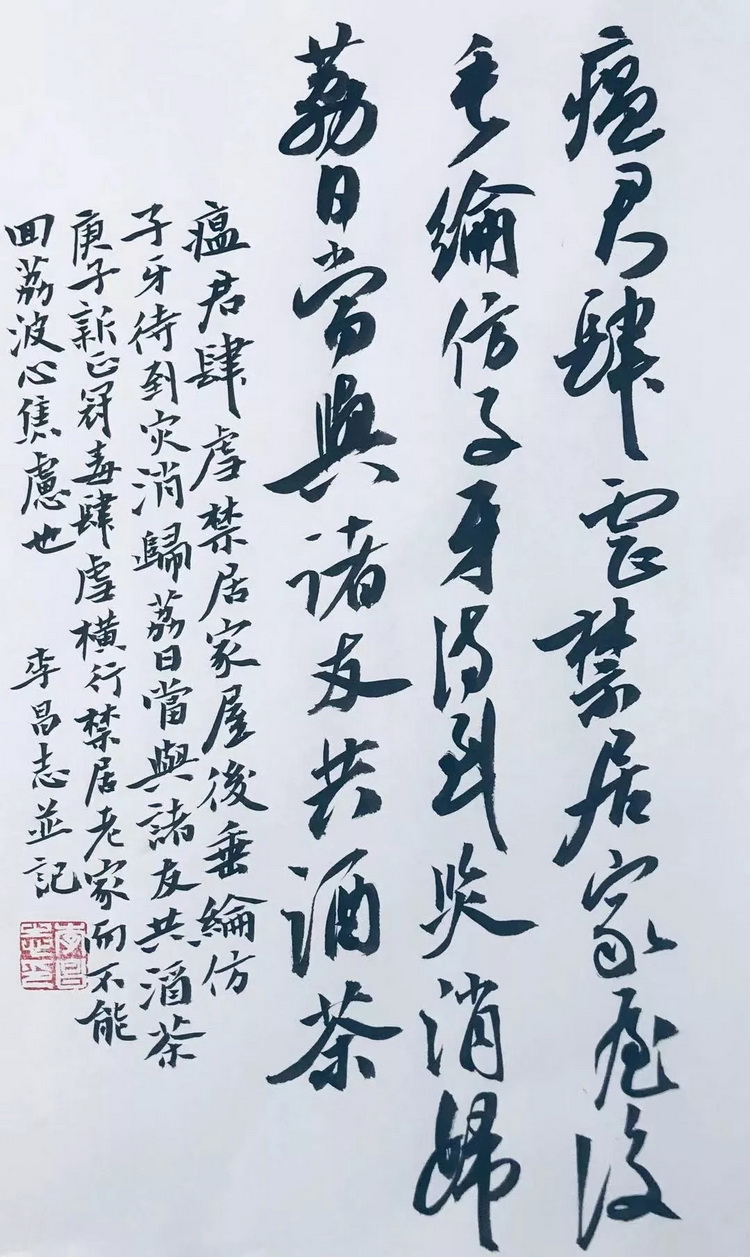 瘟君肆虐禁居家屋後
垂綸仿子牙待到災消歸
荔日當與诸友共酒茶
瘟君肆虐禁居家屋後垂綸仿
子牙待到灾消歸荔日當與諸友共酒茶
庚子新正冠毒肆虐橫行禁居老家而不能
回荔波心焦慮也
李昌志並記
李昌志印